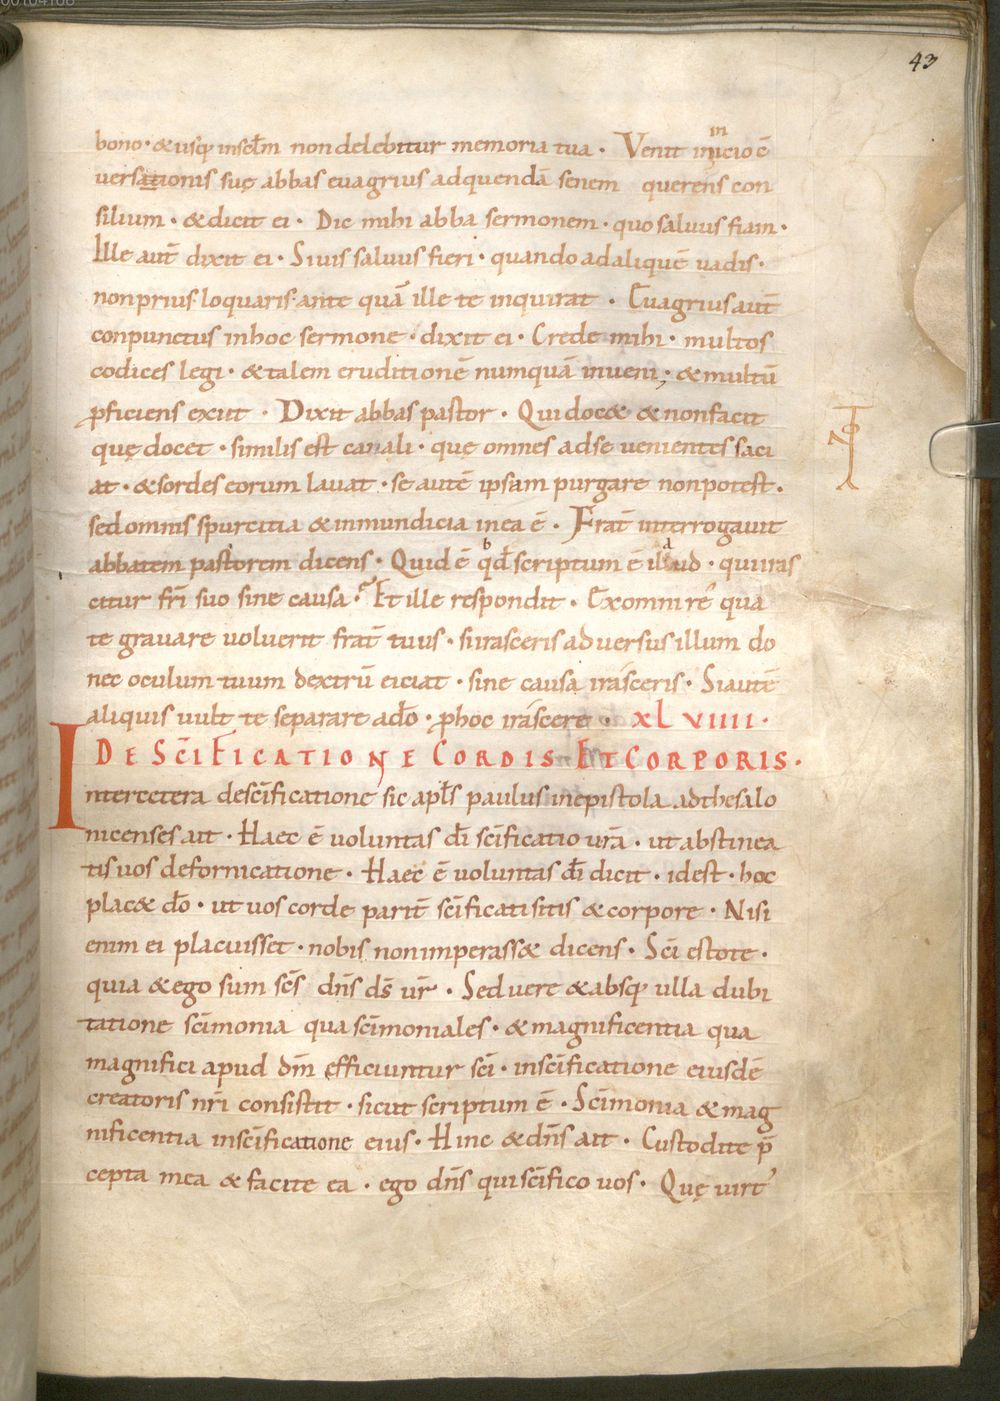 00104108
43
bono · & usq; insc̄lm non delebitur memoria tua · Venit inicio c̄
in
versationis suę abbas euagrius ad quendā senem querens con
silium · & dicit ei · Dic mihi abba sermonem · quo saluus fiam ·
Ille aut̄ dixit ei · Si uis saluus fieri · quando ad aliquē uadis ·
non prius loquaris · ante quā ille te inquirat · Euagrius aut̄
conpunctus in hoc sermone · dixit ei · Crede mihi · multos
codices legi · & talem eruditionē numquā inueni; & multū
ꝓficiens exiit · Dixit abbas pastor · Qui doc& & non facit
quę docet · similis est canali · quę omnes ad se uenientes saci
at · & sordes eorum lauat · se autē ipsam purgare non potest ·
sed omnis spurcitia & inmundicia in ea ē · Frat̄ interrogauit
abbatem pastorem dicens · Quid ē qd̄ scriptum ē illud · qui iras
citur fr̄i suo sine causa · Et ille respondit · Ex omni re qua
te grauare uoluerit frat̄ tuus · si irasceris aduersus illum do
nec oculum tuum dextrū eiciat · sine causa irasceris · Si autē
aliquis uult te separare a do̅ · ꝓ hoc irascere · XLVIIII ·
DE SC̄IFICATIONE CORDIS ET CORPORIS ·
Inter cetera de sc̄ificatione sic apl̄s paulus in epistola ad thesalo
nicenses ait · Haec ē uoluntas dī sc̄ificatio ur̄a · ut abstinea
tis uos a fornicatione · Haec ē uoluntas dī dicit · id est · hoc
plac& do̅ · ut uos corde parit̄ sc̄ificati sitis & corpore · Nisi
enim ei placuisset · nobis non imperass& dicens · Sc̄i estote ·
quia & ego sum sc̄s dn̄s ds̄ ur̄ · Sed uere & absq; ulla dubi
tatione sc̄imonia qua sc̄imoniales · & magnificentia qua
magnifici apud dm̄ efficiuntur sc̄i · in sc̄ificatione eiusdē
creatoris nr̄i consistit · sicut scriptum ē · Sc̄imonia & mag
nificentia in sc̄ificatione eius · Hinc & dn̄s ait · Custodite p̄
cepta mea & facite ea · ego dn̄s qui sc̄ifico uos · Quę uirt᾽